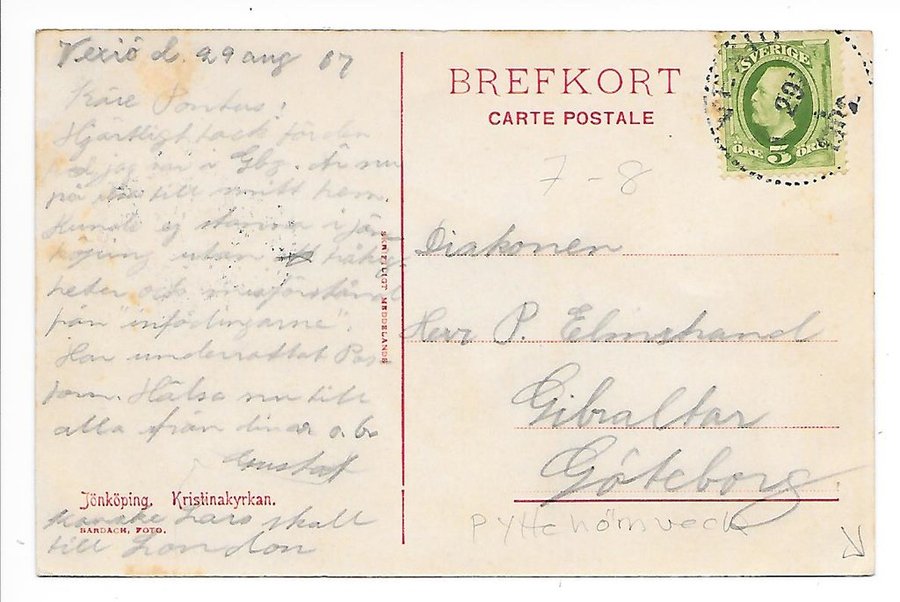 Vexiö d. 29 aug 07
Käre Pontus!
Hjärtligt tack för den
tid jag var i Gbg. Är nu
på väg till mitt hem.
Kunde ej stanna i jön
köping utan
heter och missförstånd
från infödingarne".
Har underrättat Pas
torn. Hälsa nu till
alla från din v. o. br
Gustaf
Jönköping. Kristinakyrkan.
BARDACH, FOTO.
kanske Lars skall
till London
SKRIFTLIGT MEDDELANDE
BREFKORT
CARTE POSTALE
SVERIGE
ÖRE 5 ÖRE
29
7 - 8
Diakonen
Herr P. Elmstrand
Gibraltar
Göteborg